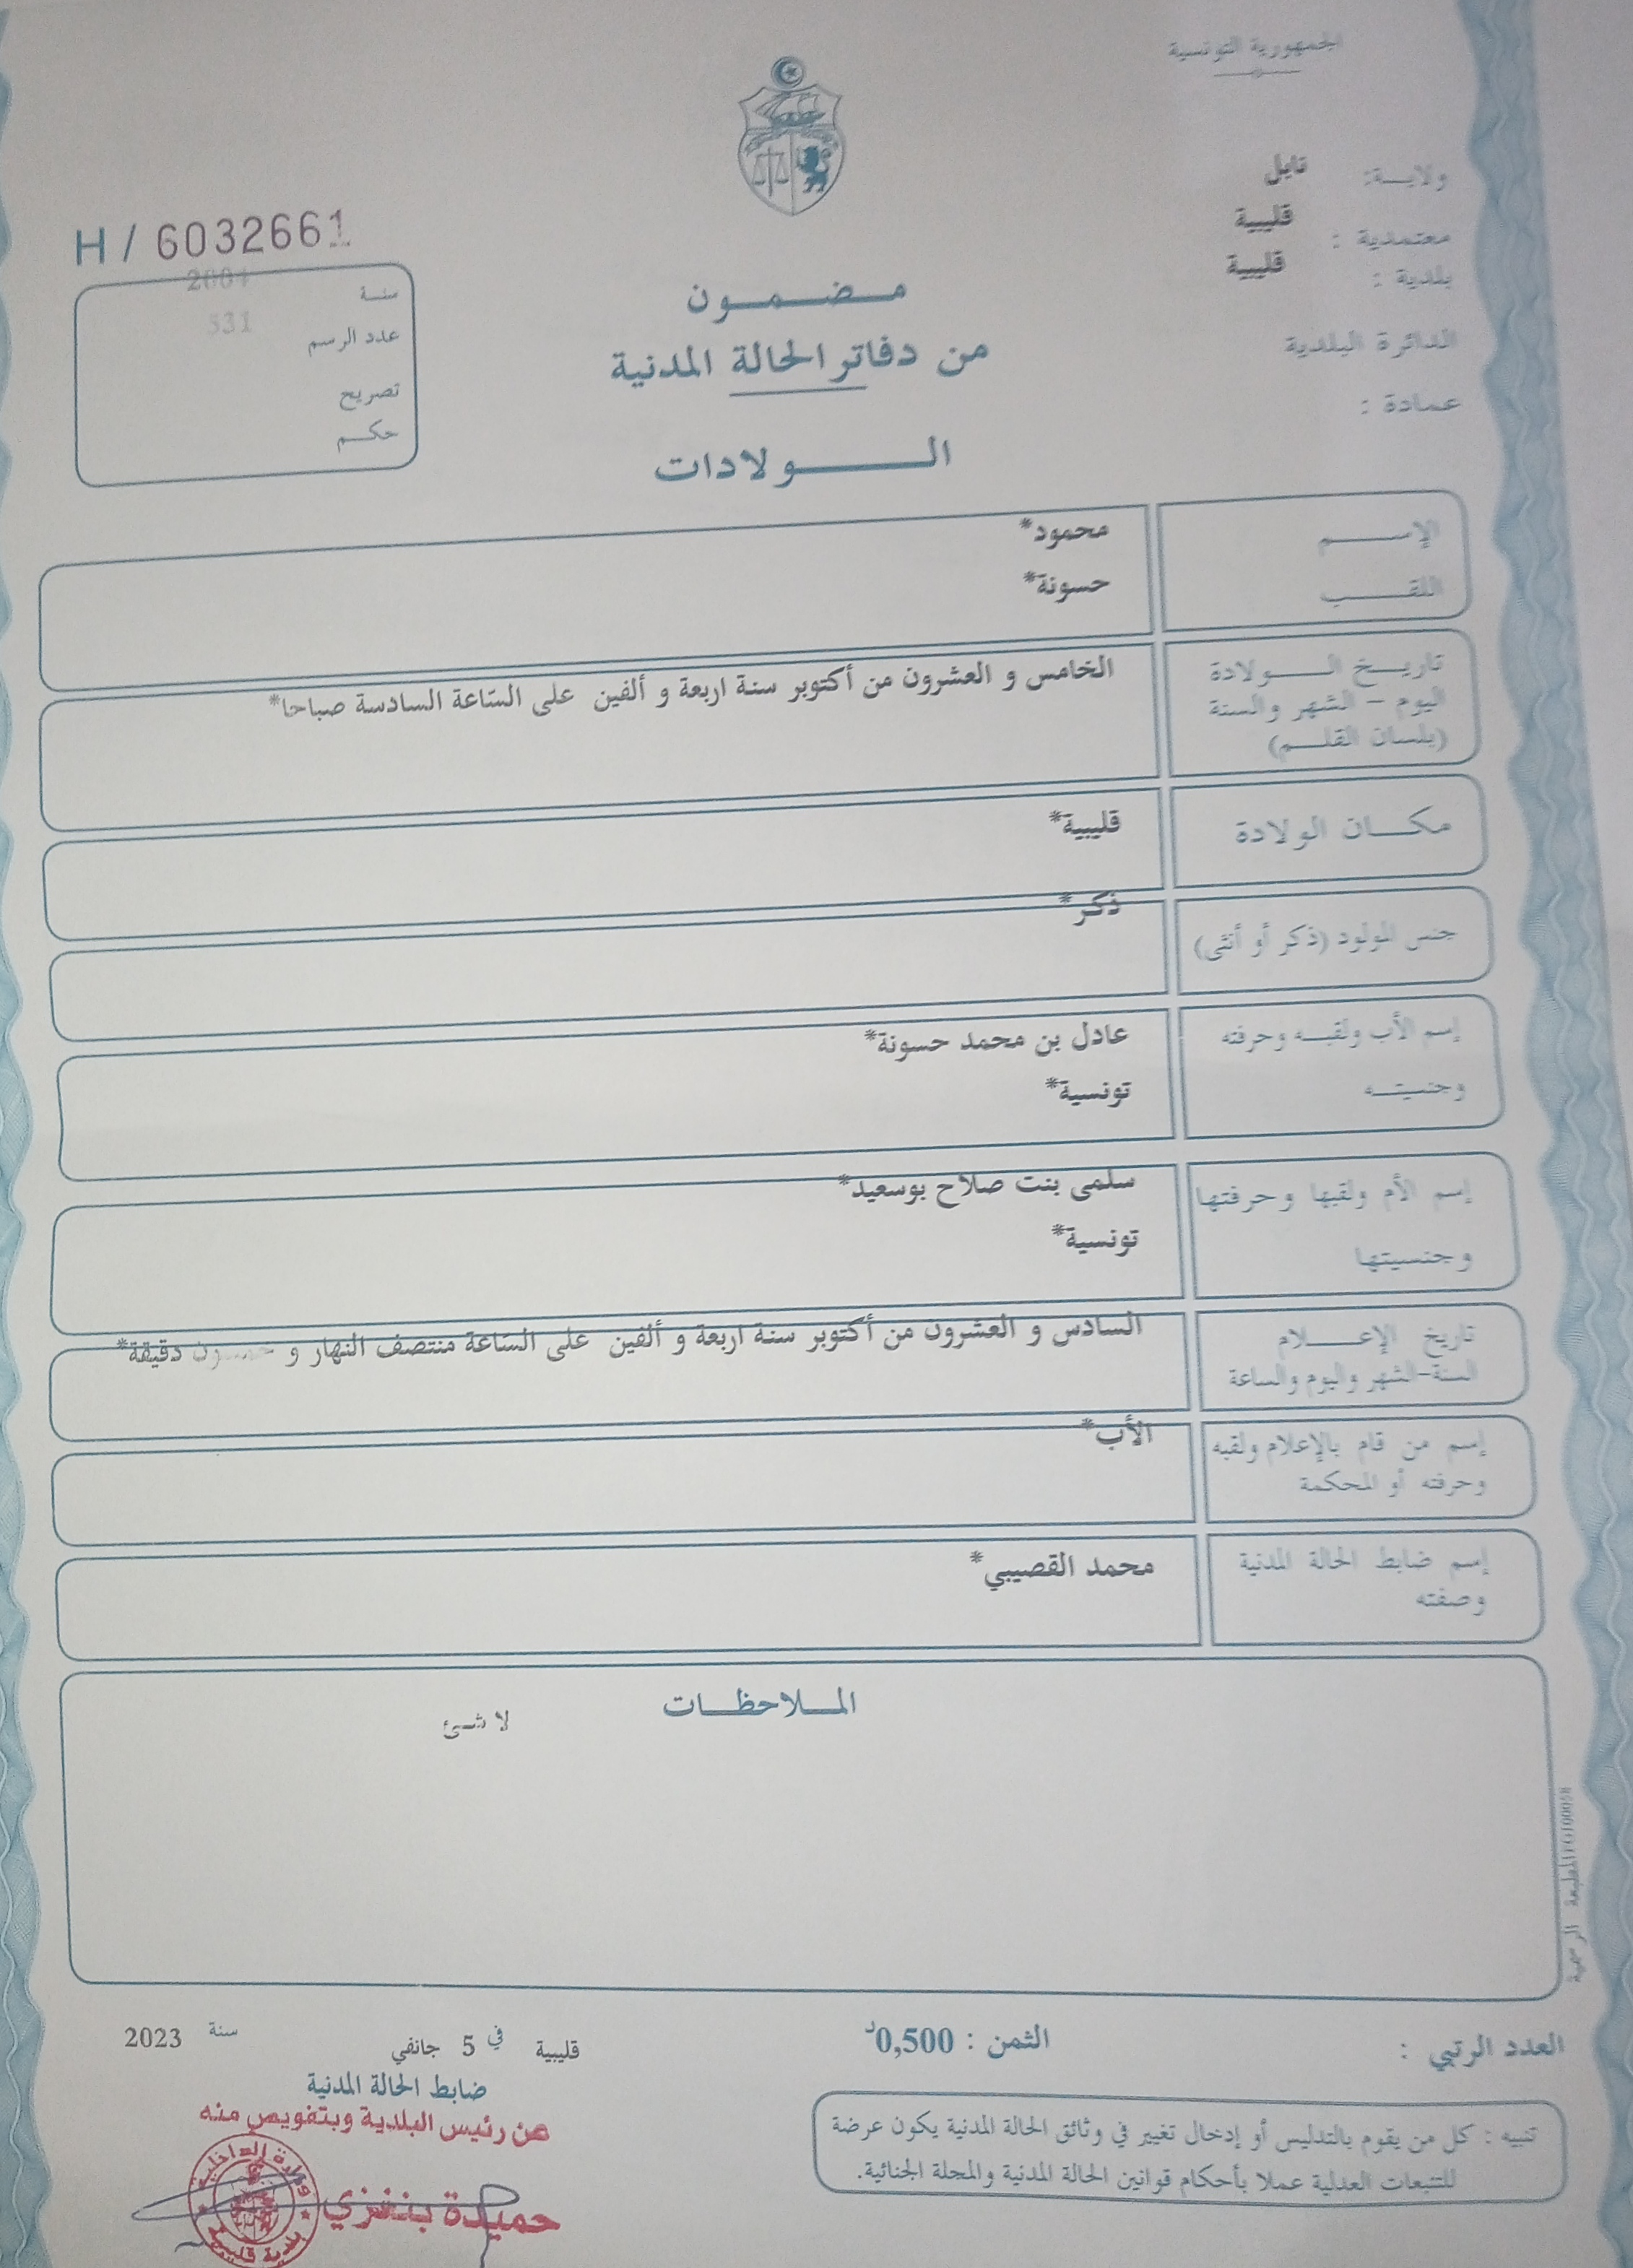 الجمهورية التونسية
ولاية: نابل
معتمدية : قليبية
بلدية : قليبية
الدائرة البلدية
عمادة :
H / 6032661
سنة 2004
عدد الرسم 531
تصريح
حكم
مضمون
من دفاتر الحالة المدنية
الولادات
الإسم محمود*
اللقب حسونة*
تاريخ الولادة
اليوم - الشهر والسنة
(بلسان القلم)
الخامس و العشرون من أكتوبر سنة اربعة و ألفين على السّاعة السادسة صباحا*
مكان الولادة قليبية*
جنس المولود (ذكر أو أنثى) ذكر*
إسم الأب ولقبه وحرفته عادل بن محمد حسونة*
وجنسيته تونسية*
إسم الأم ولقبها وحرفتها سلمى بنت صلاح بوسعيد*
وجنسيتها تونسية*
تاريخ الإعلام
السنة-الشهر واليوم والساعة
السادس و العشرون من أكتوبر سنة اربعة و ألفين على السّاعة منتصف النهار و خمسون دقيقة*
إسم من قام بالإعلام ولقبه
وحرفته أو المحكمة
الأب*
إسم ضابط الحالة المدنية
وصفته
محمد القصيبي*
الملاحظات
لا شئ
المطبعة الرسمية
العدد الرتبي :
الثمن : 0,500د
قليبية في 5 جانفي سنة 2023
ضابط الحالة المدنية
عن رئيس البلدية وبتفويض منه
وزارة الداخلية
بلدية قليبية
حميدة بنغزي
تنبيه : كل من يقوم بالتدليس أو إدخال تغيير في وثائق الحالة المدنية يكون عرضة
للتتبعات العدلية عملا بأحكام قوانين الحالة المدنية والمجلة الجنائية.